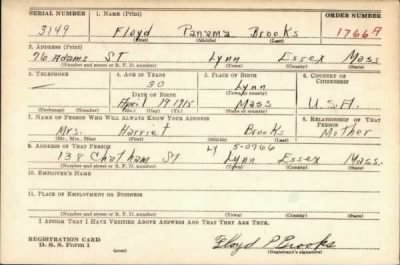 SERIAL NUMBER 1. NAME (Print) ORDER NUMBER
3149 Floyd Panama Brooks 1766A
(First) (Middle) (Last)
2. ADDRESS (Print)
76 Adams ST Lynn Essex Mass
(Number and street or R. F. D. number) (Town) (County) (State)
3. TELEPHONE 4. AGE IN YEARS 5. PLACE OF BIRTH 6. COUNTRY OF CITIZENSHIP
— 30 Lynn
DATE OF BIRTH (Town or county)
April 19 1915 Mass U.S.A.
(Exchange) (Number) (Mo.) (Day) (Yr.) (State or country)
7. NAME OF PERSON WHO WILL ALWAYS KNOW YOUR ADDRESS 8. RELATIONSHIP OF THAT PERSON
Mrs. Harriet Brooks Mother
(Mr., Mrs., Miss) (First) (Middle) (Last)
9. ADDRESS OF THAT PERSON LY 5-0766
138 Chatham St Lynn Essex Mass.
(Number and street or R. F. D. number) (Town) (County) (State)
10. EMPLOYER'S NAME
11. PLACE OF EMPLOYMENT OR BUSINESS
(Number and street or R. F. D. number) (Town) (County) (State)
I AFFIRM THAT I HAVE VERIFIED ABOVE ANSWERS AND THAT THEY ARE TRUE.
REGISTRATION CARD
D. S. S. Form 1 (over) Floyd P Brooks
(Registrant's signature)